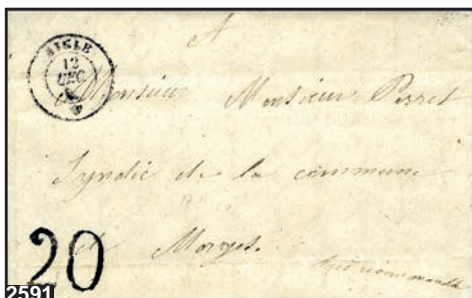 A
AIGLE
12
DEC
Monsieur Monsieur Perret
Syndic de la commune
de Morges.
20
Très recommandé
2591